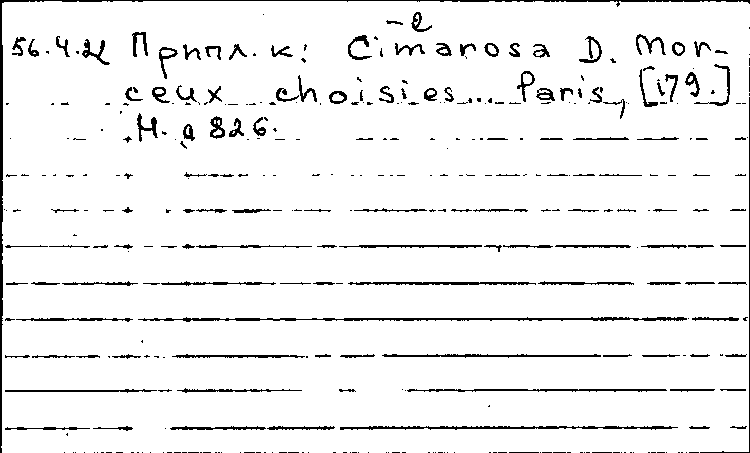 -2
56.4.22 Припл. к: Cimarosa D. Mor-
ceux choisies... Paris, [179.]
Н. д 826.